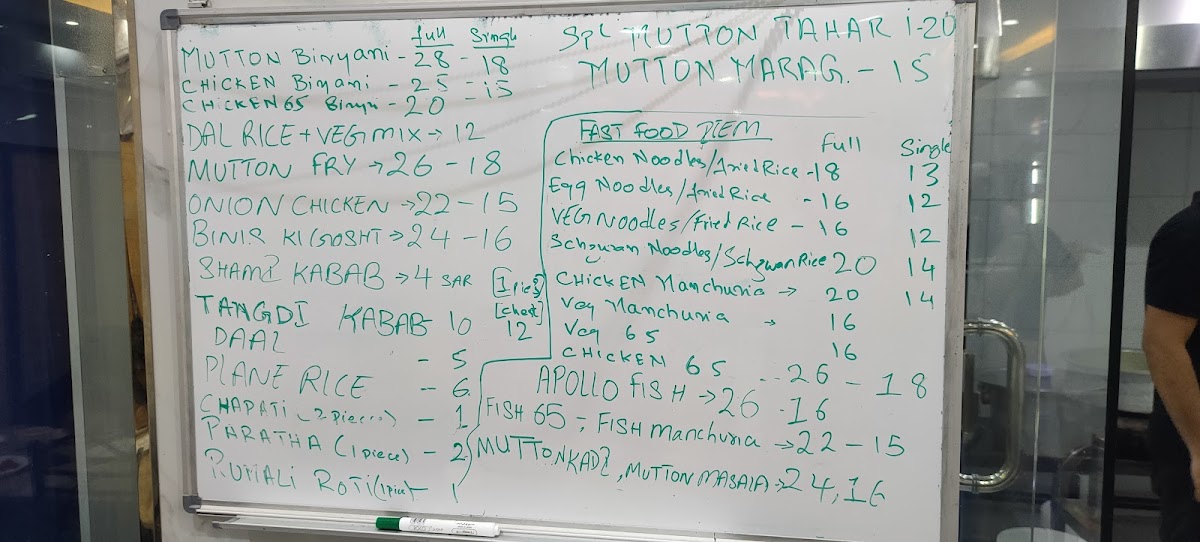 full Single
MUTTON Biryani - 28 - 18
CHICKEN Biryani - 25 - 15
CHICKEN 65 Birya - 20
DAL RICE + VEG MIX → 12
MUTTON FRY → 26 - 18
ONION CHICKEN → 22 - 15
BINIS KI GOSHT → 24 - 16
SHAMI KABAB → 4 SAR [1 pies]
TANGDI KABAB - 10 [Chest] 12
DAAL - 5
PLANE RICE - 6
CHAPATI (2 pieces) - 1
PARATHA (1 piece) - 2
RUMALI ROTI (1 piece) - 1
SPL MUTTON TAHARI - 20
MUTTON MARAG. - 15
FAST FOOD ITEM
Full Single
Chicken Noodles/fried Rice - 18 13
Egg Noodles/fried Rice - 16 12
VEG Noodles/Fried Rice - 16 12
Schzwan Noodles/Schzwan Rice 20 14
CHICKEN Manchuria → 20 14
Veg Manchuria → 16
Veg 65 16
CHICKEN 65 -- 26 - 18
APOLLO FISH → 26 - 16
FISH 65 ; FISH Manchuria → 22 - 15
MUTTON KADI, MUTTON MASALA → 24, 16